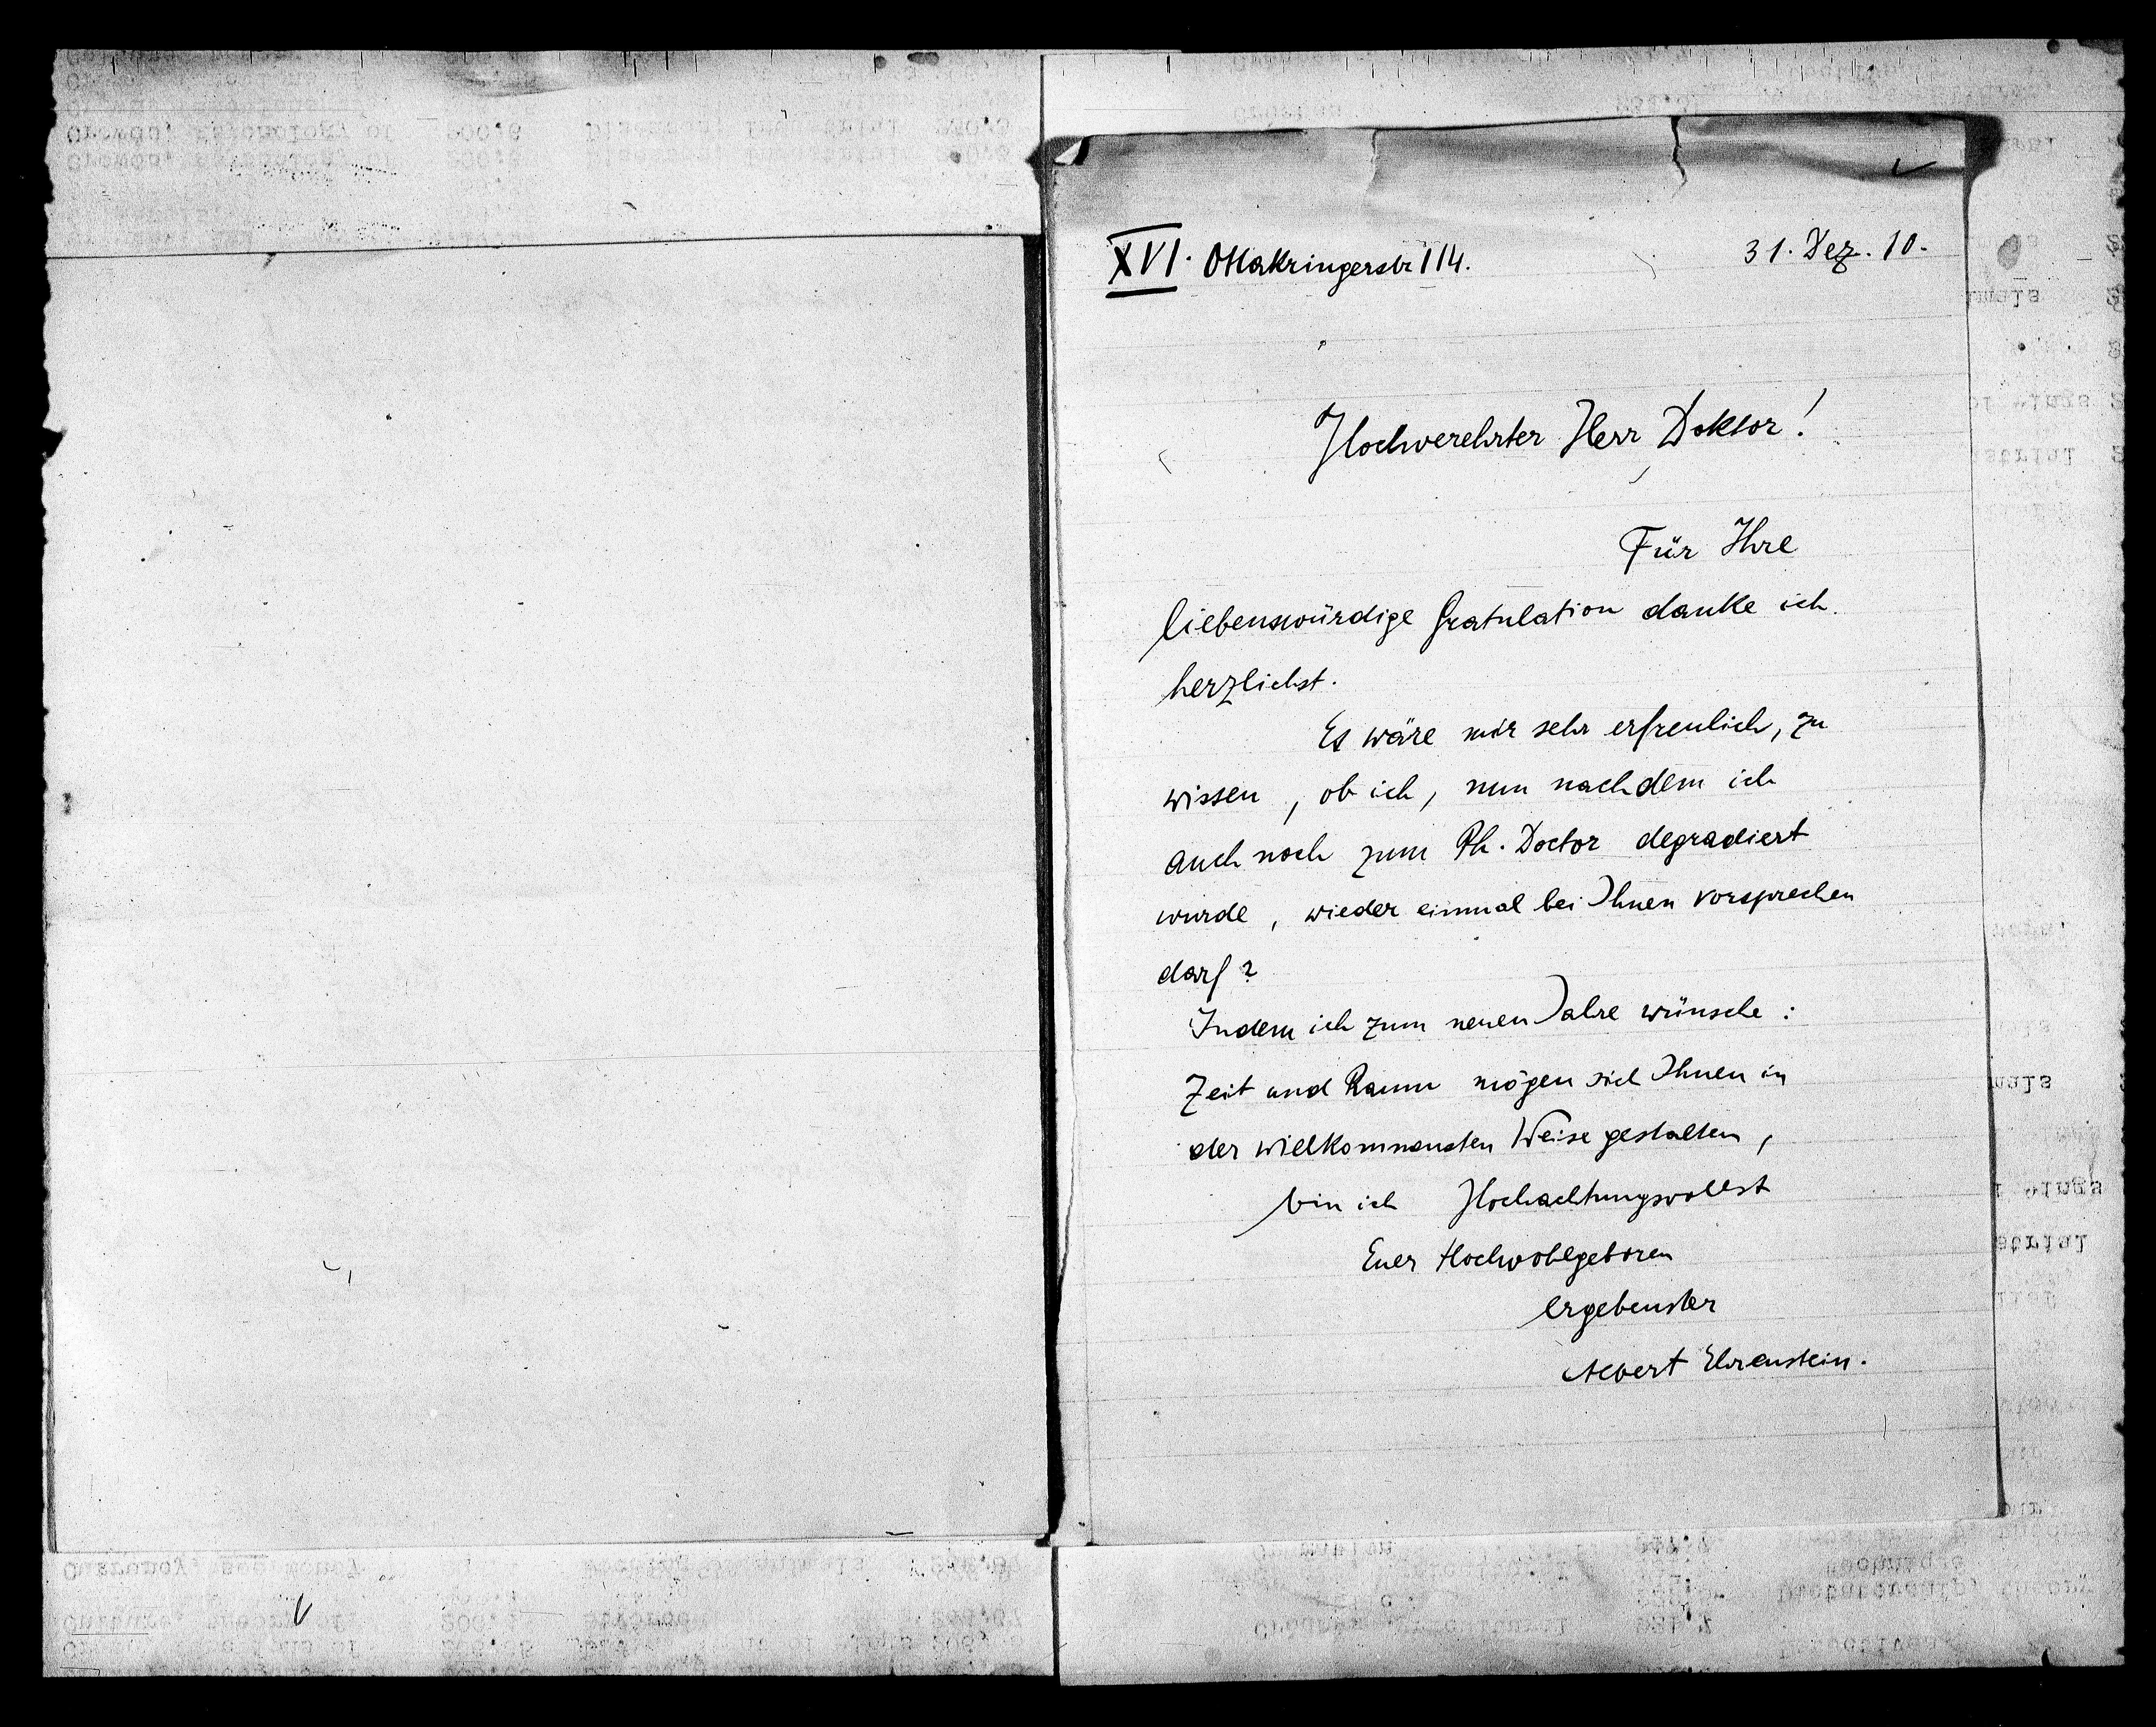 XVI. Ottakringerstr 114. 31. Dez. 10.
Hochverehrter Herr Doktor!
Für Ihre
liebenswürdige Gratulation danke ich
herzlichst.
Es wäre mir sehr erfreulich, zu
wissen, ob ich, nun nachdem ich
auch noch zum Ph. Doctor degradiert
wurde, wieder einmal bei Ihnen vorsprechen
darf?
Indem ich zum neuen Jahre wünsche:
Zeit und Raum mögen sich Ihnen in
der willkommensten Weise gestalten,
bin ich Hochachtungsvollst
Euer Hochwohlgeboren
ergebenster
Albert Ehrenstein.